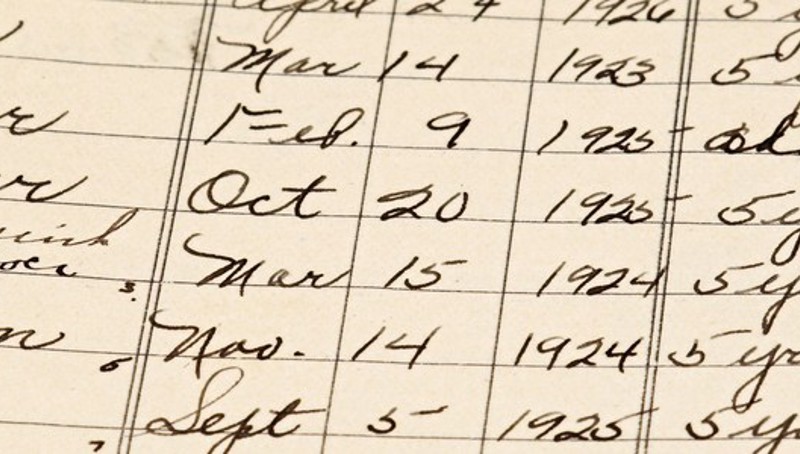 April 24 1926 5
Mar 14 1923 5
Feb. 9 1925
Oct 20 1925 5 y
Mar 15 1924 5 y
Nov. 14 1924 5 yr
6
Sept 5 1925 5 y
7